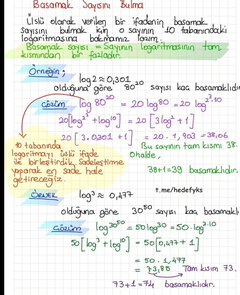 Basamak Sayısını Bulma
Üslü olarak verilen bir ifadenin basamak
sayısını bulmak için o sayının 10 tabanındaki
logaritmasına bakmamız lazım.
Basamak sayısı = Sayının logaritmasının tam
kısmından bir fazladır.
Örneğin;
log2 ≈ 0,301
olduğuna göre 80²⁰ sayısı kaç basamaklıdır
Çözüm log80²⁰ = 20log80 = 20log2³·10
20[log2³ + log10] = 20[3log2 + 1]
20[3·0,301 + 1] = 20·1,903 = 38,06
10 tabanında
logaritmayı üslü ifade
ile birleştirdik, sadeleştirme
yaparak en sade hale
getireceğiz.
Bu sayının tam kısmı 38
O halde,
38+1 = 39 basamaklıdır.
t.me/hedefyks
Örnek log3 ≈ 0,477
olduğuna göre 30⁵⁰ sayısı kaç basamaklı
Çözüm log30⁵⁰ = 50log30 = 50·log3·10
50[log3 + log10] = 50[0,477 + 1]
= 50·1,477
= 73,85 Tam kısım 73.
73+1 = 74 basamaklıdır.